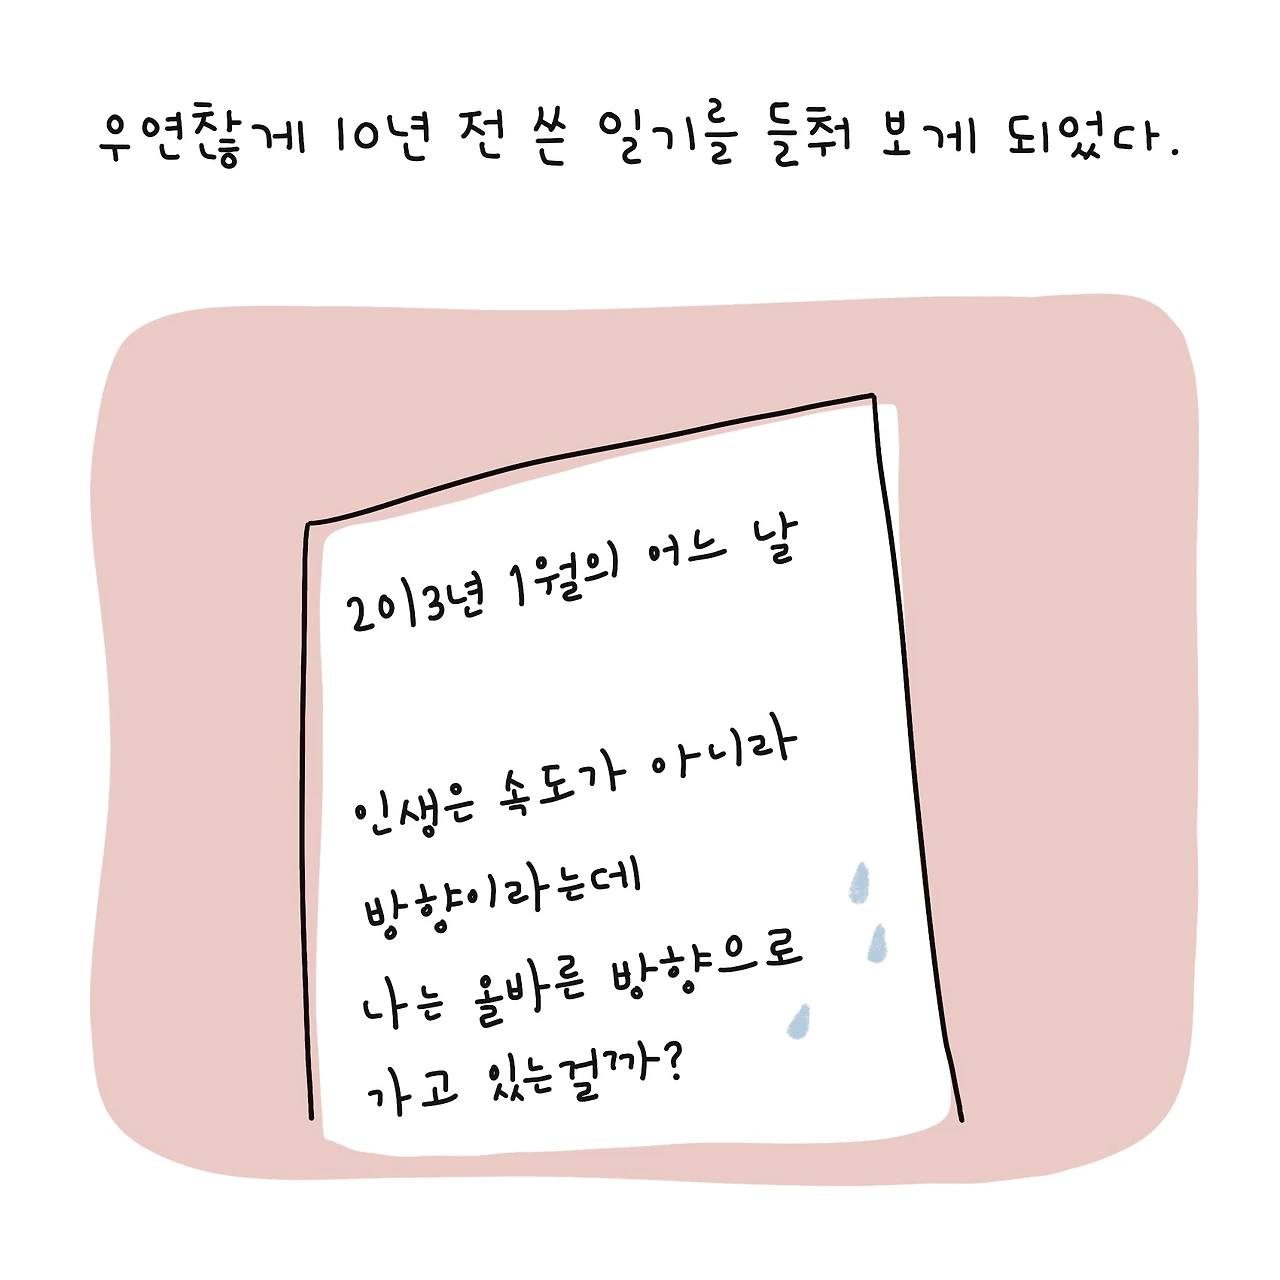 우연찮게 10년 전 쓴 일기를 들춰 보게 되었다.
2013년 1월의 어느 날
인생은 속도가 아니라
방향이라는데
나는 올바른 방향으로
가고 있는걸까?